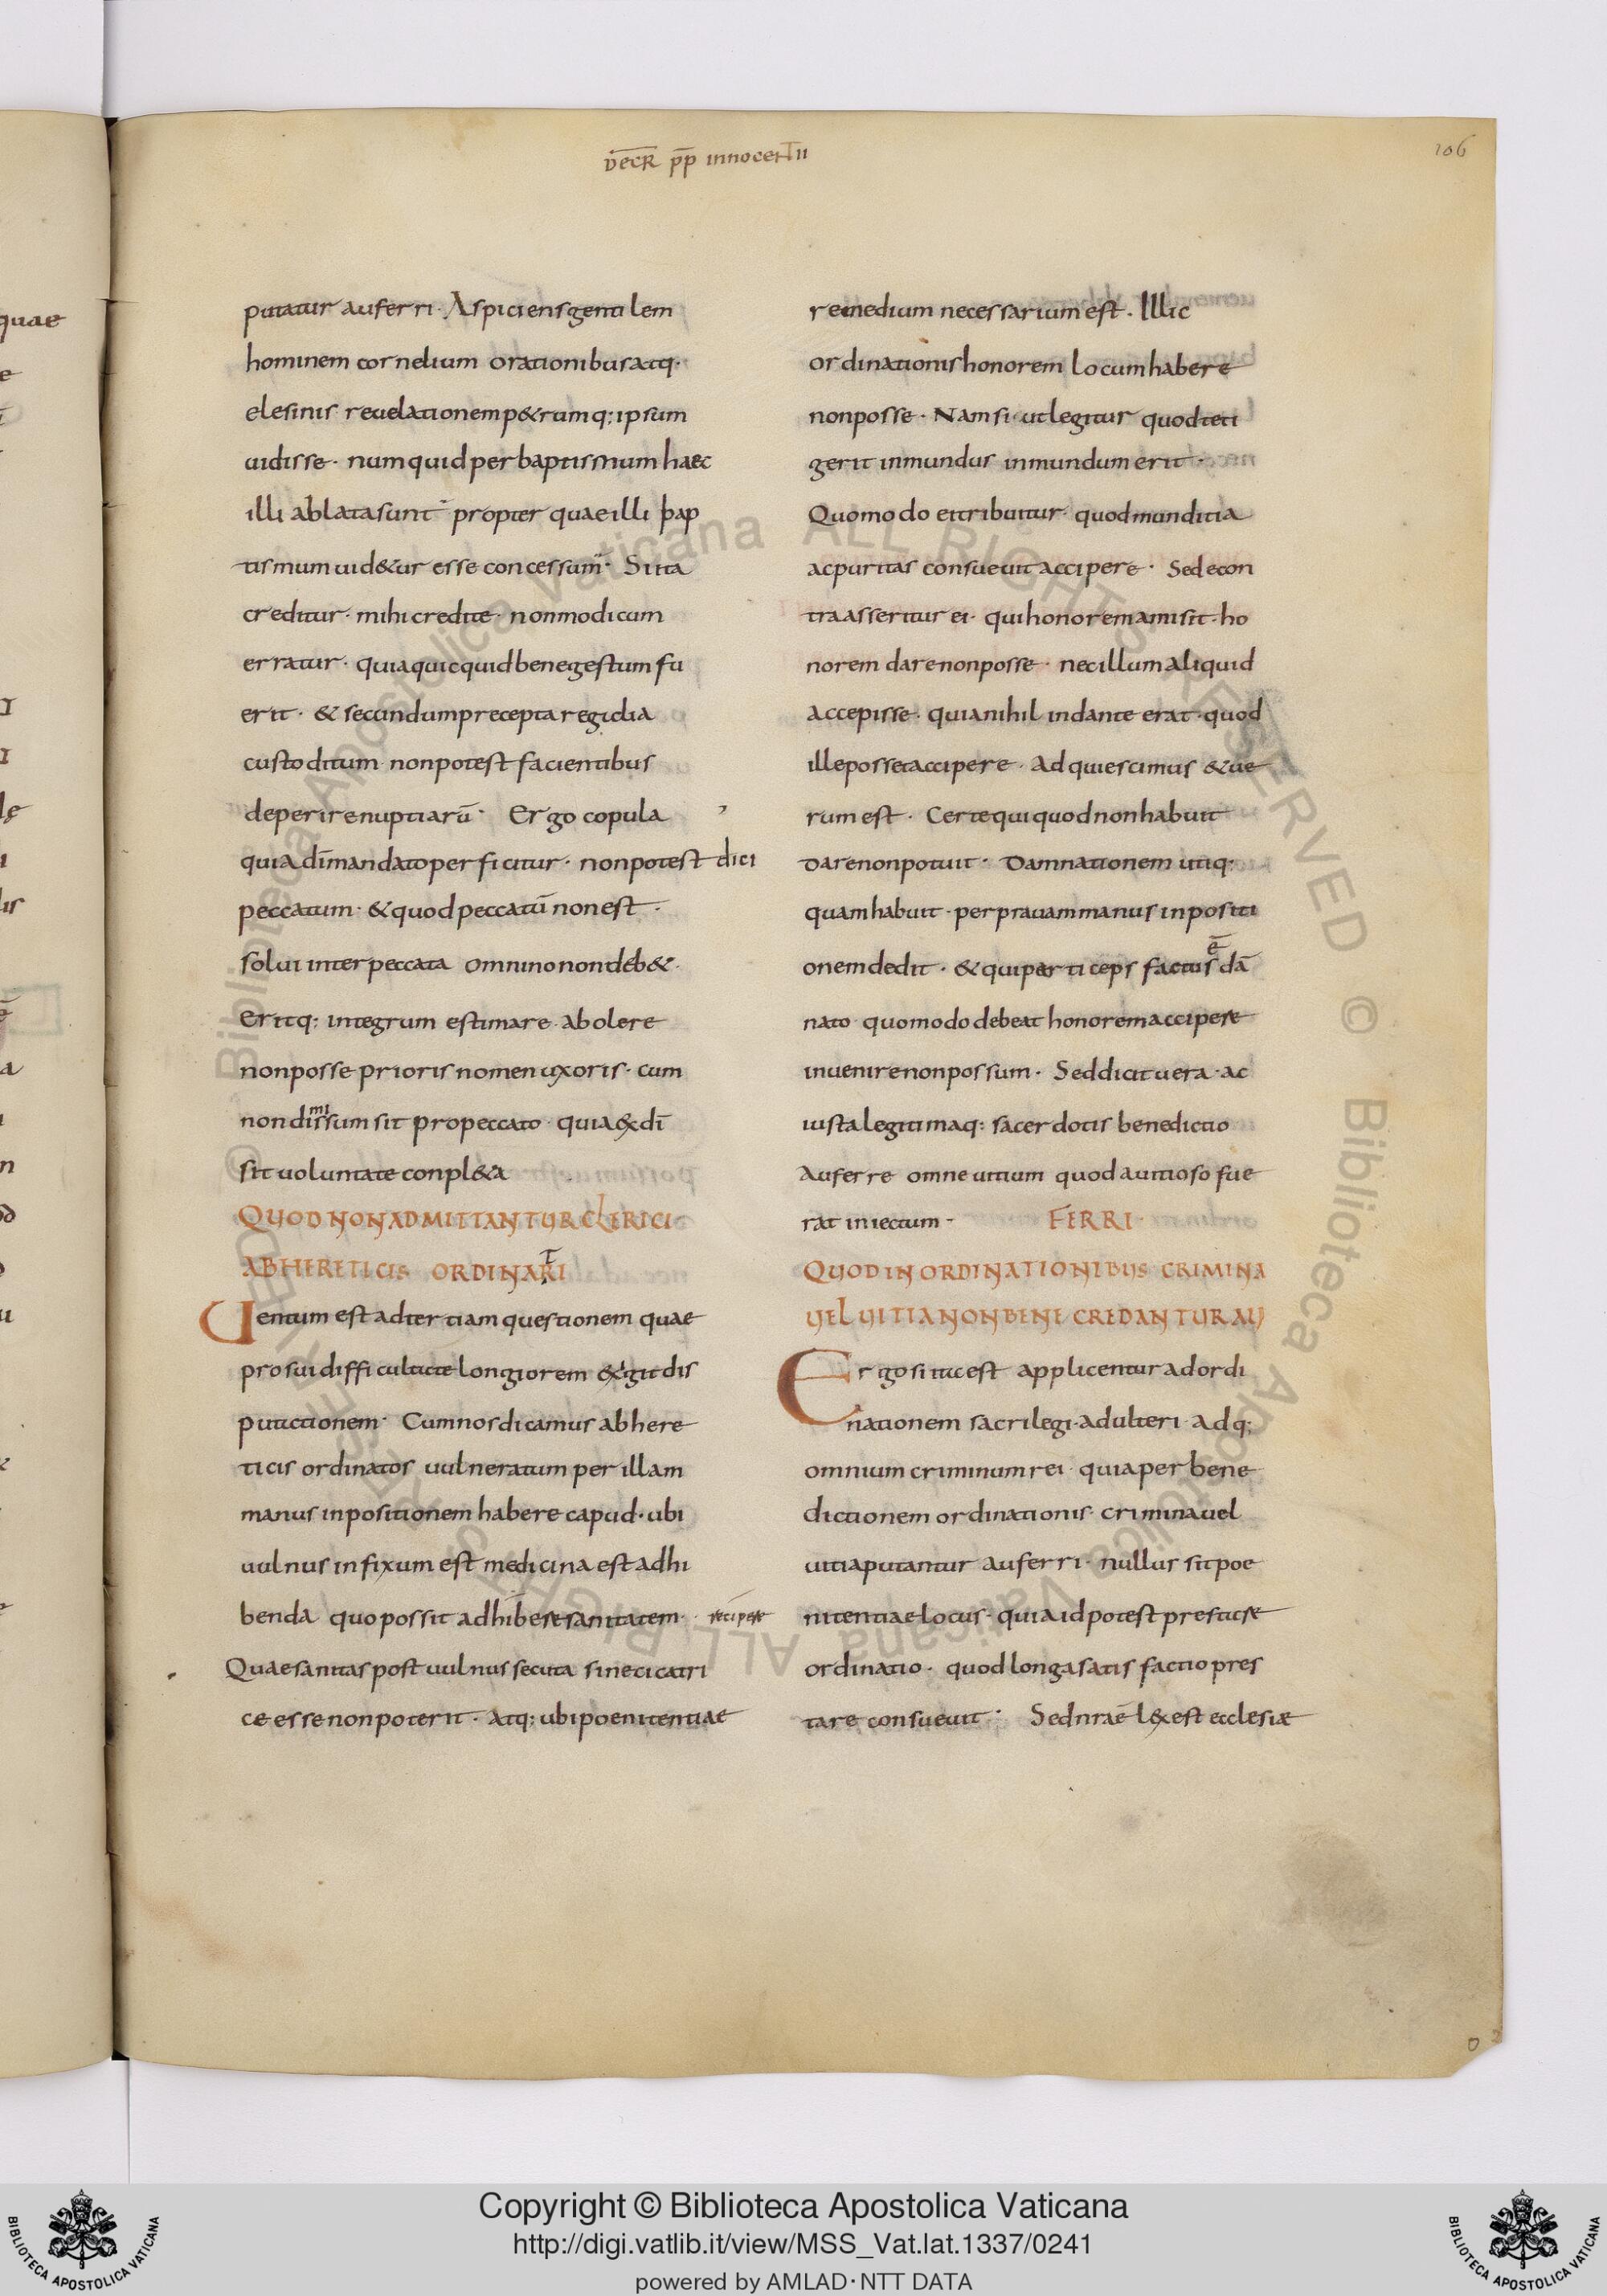 DECR̄ p̄p̄ innocentii
106
putatur auferri· Aspiciens gentilem
hominem cornelium orationibus atq·
elesinis reuelationem p&rumq; ipsum
uidisse· numquid per baptismum haec
illi ablata sunt propter quae illi bap
tismum uid&ur esse concessum· Si ita
creditur· mihi credite· non modicum
erratur· quia quicquid bene gestum fu
erit· & secundum precepta regidia
custoditum non potest facientibus
deperire nuptiarū· Ergo copula
quia dī mandato perficitur· non potest dici
peccatum· & quod peccatū non est·
solui inter peccata omnino non deb&·
Eritq; integrum estimare abolere
non posse prioris nomen uxoris· cum
non dimissum sit pro peccato quia ex dī
sit uoluntate conpl&a
QUOD NON ADMITTANTUR CLERICI
AB HERETICIS ORDINARI
Uentum est ad tertiam questionem quae
pro sui difficultate longiorem exigit dis
putationem· Cum nos dicamus ab here
ticis ordinatos uulneratum per illam
manus inpositionem habere capud· ubi
uulnus infixum est medicina est adhi
benda quo possit adhibere sanitatem· recipere
Quae sanitas post uulnus secuta sine cicatri
ce esse non poterit· Atq; ubi poenitentiae
remedium necessarium est· Illic
ordinationis honorem locum habere
non posse· Nam si· ut legitur quod teti
gerit inmundus inmundum erit·
Quomodo ei tribuitur· quod munditia
ac puritas consueuit accipere· Sed econ
tra asseritur ei· qui honorem amisit· ho
norem dare non posse· nec illum aliquid
accepisse· quia nihil in dante erat· quod
ille posset accipere· Adquiescimus & ue
rum est· Certe qui quod non habuit
dare non potuit· Damnationem utiq;
quam habuit· per prauam manus inpositi
onem dedit· & qui particeps factus ē dā
nato quomodo debeat honorem accipere
inuenire non possum· Sed dicit uera· ac
iusta legitimaq; sacerdotis benedictio
Auferre omne uitium quod a uitioso fue
rat iniectum· FERRI·
QUOD IN ORDINATIONIBUS CRIMINA
UEL UITIA NON BENE CREDANTUR AU
Ergo si ita est applicentur ad ordi
nationem sacrilegi· adulteri adq;
omnium criminum rei quia per bene
dictionem ordinationis· crimina uel
uitia putantur auferri· nullus sit poe
nitentiae locus· quia id potest prestare
ordinatio· quod longa satisfactio pres
tare consueuit· Sed nrāe lex est ecclesiæ
© Biblioteca Apostolica Vaticana ALL RIGHTS RESERVED © Biblioteca Apostolica Vaticana ALL RIGHTS RESERVED
Copyright © Biblioteca Apostolica Vaticana
http://digi.vatlib.it/view/MSS_Vat.lat.1337/0241
powered by AMLAD·NTT DATA
BIBLIOTECA APOSTOLICA VATICANA
BIBLIOTECA APOSTOLICA VATICANA